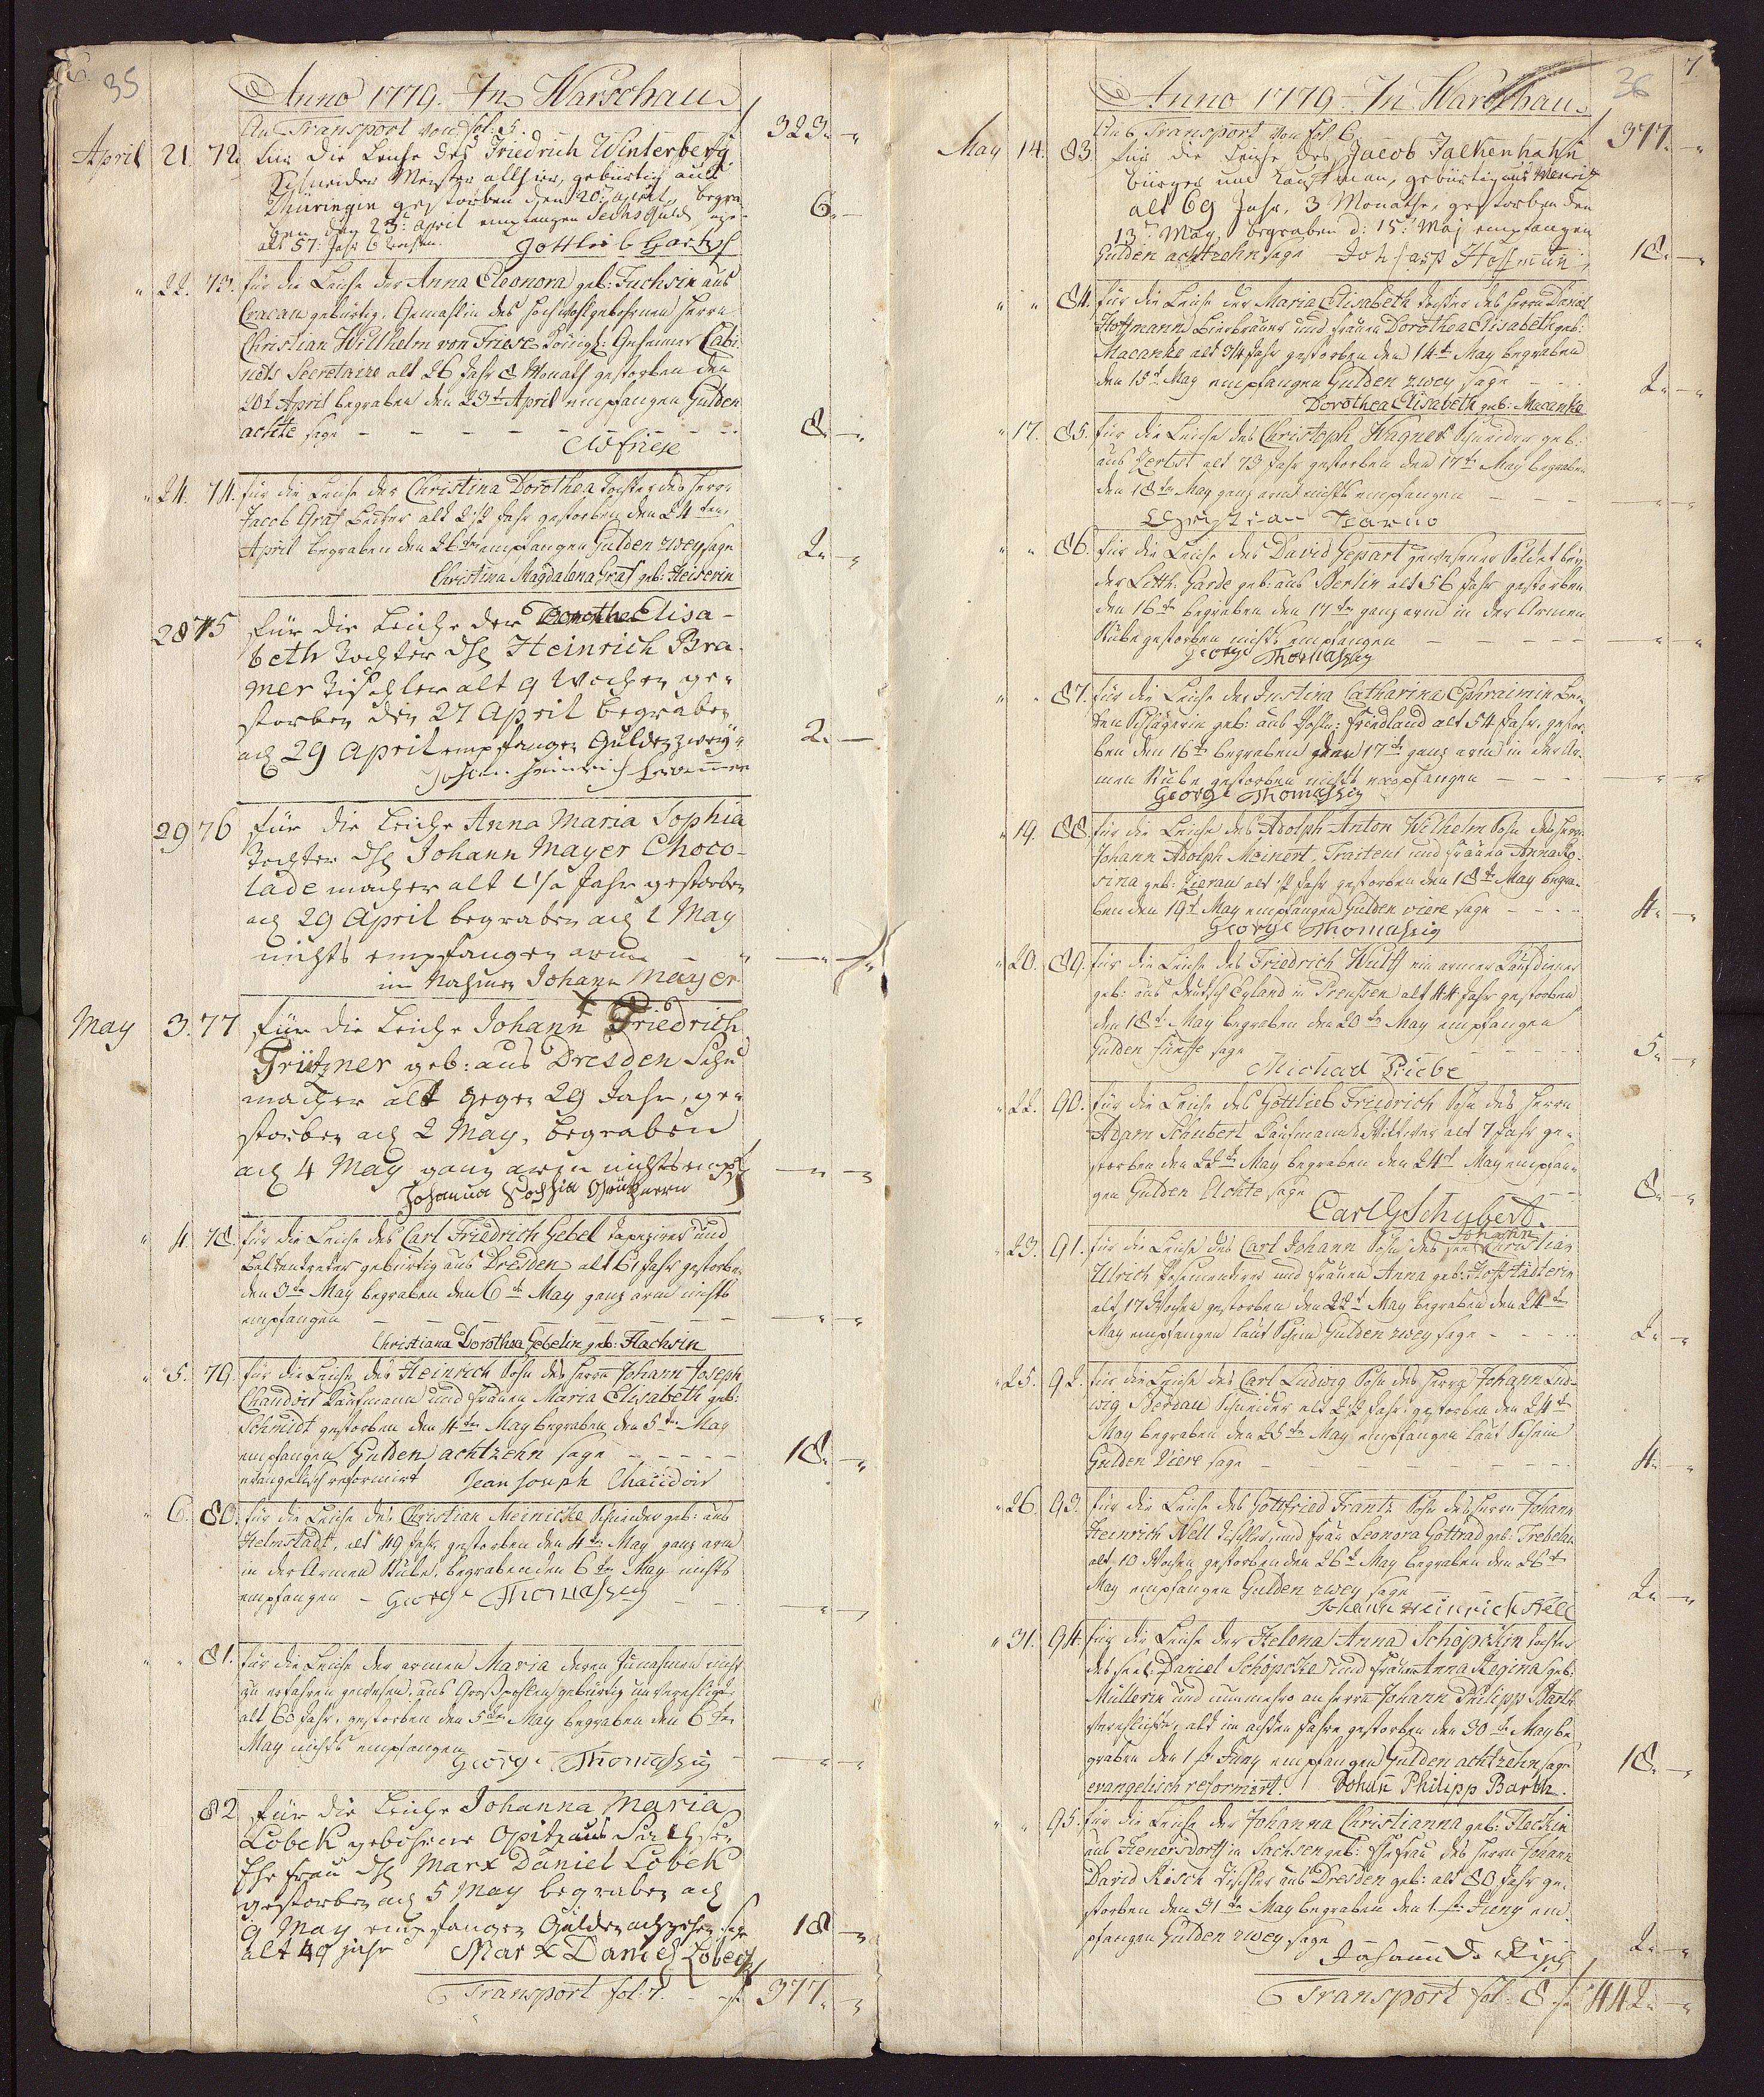 6.
35
Anno 1779. In Warschau
An Transport von fol: 5. 323 „ – „
April 21. 72. für die Leiche des Friedrich Winterberg
Schneider Meister allhier, gebürtig aus
Thüringen gestorben den 20t. april, begra-
ben den 23t. april empfangen Sechs Guld 6. –
alt 57: Jahr 6 Wochen. Gottlieb Hartzsch
„ 22. 73. für die Leiche der Anna Eleonora geb: Fuchsin aus
Cracau gebürtig, Gemahlin des Hochwohlgebohrnen Herrn
Christian Willhelm von Friese Königl: Geheimer Cabi-
nets Secretaire alt 26 Jahr 8 Monath gestorben den
20t April begraben den 23t April empfangen Gulden
achte sage – – – – – – 8. – „
CW Friese
„ 24. 74. für die Leiche der Christina Dorothea Tochter des Herrn
Jacob Graf alt 2 1/2 Jahr gestorben den 24ten
April begraben den 26ten empfangen Gulden zwey sage 2. – „
Christina Magdalena Graf geb: Heiserin
28 75 für die Leiche der Dorothe Elisa-
beth Tochter des Heinrich Bra-
mer Tischler alt 9 Wochen ge-
storben den 27 April begraben
den 29 April empfangen Gulden zwey 2. –
Johann Heinrich Brammer
29 76 für die Leiche Anna Maria Sophia
Tochter des Johann Mayer Choco-
lade macher alt 1 1/2 Jahr gestorben
den 29 April begraben den 1 May
nichts empfangen arm – „ – „ – „
im Nahmen Johann Mayer
May 3. 77 für die Leiche Johann Friedrich
Grützner geb: aus Dresden Schu
macher alt gegen 29 Jahr, ge-
storben den 2 May, begraben
den 4 May ganz arm nichts empf – „ –
Johanna Sophia Grütznern
„ 4. 78. für die Leiche des Carl Friedrich Gebel Tapezirer und
Balkentreter gebürtig aus Dresden alt 61 Jahr gestorben
den 3ten May begraben den 6ten May ganz arm nichts
empfangen – – – – – – – „ – „
Christiana Dorothea Gebelin geb: Flachsin
„ 5. 79. für die Leiche des Heinrich Sohn des Herrn Johann Joseph
Chaudoir Kaufmann und Frauen Maria Elisabeth geb:
Schmidt gestorben den 4ten May begraben den 5ten May
empfangen Gulden achtzehn sage – – – – 18. – „
evangelisch reformirt Jean Joseph Chaudoir
„ 6. 80. für die Leiche des Christian Meinicke Schneider geb: aus
Helmstädt, alt 49 Jahr gestorben den 4ten May ganz arm
in der Armen Stube, begraben den 6ten May nichts
empfangen – George Thomaszig – „ – „
„ „ 81. für die Leiche der armen Maria deren Zunahmen nicht
zu erfahren gewesen, aus Groß pohlen gebürtig unverehligt
alt 60 Jahr, gestorben den 5ten May begraben den 6ten
May nichts empfangen – „ – „
George Thomaszig
82 für die Leiche Johanna Maria
Lobek gebohrne Opitz aus Sachsen
Ehe frau des Marx Daniel Lobek
gestorben den 5 May begraben den
9 May empfangen Gulden achzehn sage 18 – „
alt 49 jahr Marx Daniel Lobeck
Transport fol: 7 – f 377. – „
7.
36
Anno 1779 In Warschau
An Transport von fol 6. 377. – „
May 14. 83. für die Leiche des Jacob Falkenhahn
bürger und Kaufman, gebürtig aus
alt 69 Jahr, 3 Monathe, gestorben den
13t. May, begraben d: 15t. Maj empfangen
Gulden achtzehn sage Joh Hoffmann 18. – „
„ „ 84. für die Leiche der Maria Elisabeth Tochter des Herrn Daniel
Hoffmann Bierbrauer und Frauen Dorothea Elisabeth geb:
Macanke alt 3/4 Jahr gestorben den 14t May begraben
den 15t May empfangen Gulden zwey sage – – – 2. – „
Dorothea Elisabeth geb: Macanke
„ 17. 85. für die Leiche des Christoph Wagner Schneider geb:
aus Zerbst alt 73 Jahr gestorben den 17ten May begraben
den 18ten May ganz arm nichts empfangen – – – „ – „
Christian
„ „ 86. für die Leiche des David Gepart gewesener Soldat bey
der Litth: Garde geb: aus Berlin alt 56 Jahr gestorben
den 16ten begraben den 17ten ganz arm in der Armen
Stube gestorben nichts empfangen – – – – „ – „
George Thomaszig
„ „ 87. für die Leiche der Justina Catharina Ephraimin
geb: aus Friedland alt 54 Jahr, gestor-
ben den 16ten begraben den 17ten ganz arm in der Ar-
men Stube gestorben nichts empfangen – – – „ – „
George Thomaszig
„ 19. 88. für die Leiche des Adolph Anton Wilhelm Sohn des Herrn
Johann Adolph Meinert, Traiteur und Frauen Anna Ro-
sina geb: Zierau alt 1/2 Jahr gestorben den 18ten May begra-
ben den 19t May empfangen Gulden viere sage – – – 4. – „
George Thomaszig
„ 20. 89. für die Leiche des Friedrich Wulff ein armer
geb: aus deutsch Eyland in Preussen alt 44 Jahr gestorben
den 18t May begraben den 20ten May empfangen
Gulden fünffe sage – – – – – 5. – „
Michael Priebe
„ 22. 90. für die Leiche des Gottlieb Friedrich Sohn des Herrn
Adam Schubert Kaufmann Wittwer alt 7 Jahr ge-
storben den 22ten May begraben den 24t May empfan-
gen Gulden Achte sage – – 8. – „
Carl G Schubert.
„ 23. 91. für die Leiche des Carl Johann Sohn des Johann Christian
Ulrich Posementirer und Frauen Anna geb: Hoffstädterin
alt 17 Wochen gestorben den 22t May begraben den 24ten
May empfangen laut Schein Gulden zwey sage – – – 2. – „
„ 25. 92. für die Leiche des Carl Ludwig Sohn des Herrn Johann Lud-
wig Berdau Schneider alt 2 1/2 Jahr, gestorben den 24ten
May begraben den 25ten May empfangen laut Schein
Gulden Viere sage – – – – – – – 4. – „
„ 26. 93. für die Leiche des Gottfried Frantz Sohn des Herrn Johann
Heinrich Nell Tischler und Frau Leonora Gottrad geb: Trebelau
alt 10 Wochen gestorben den 26t May begraben den 26ten
May empfangen Gulden zwey sage 2. – „
Johann Heinrich Nell
„ 31. 94. für die Leiche der Helena Anna Schöpckin Tochter
des seel: Daniel Schöpcke und Frauen Anna Regina geb:
Müllerin und nunmehro an Herrn Johann Philipp Barth
verehlichte, alt im achten Jahre gestorben den 30ten May be
graben den 1ten Juny empfangen Gulden achtzehn sage 18. – „
evangelisch reformirt. Johann Philipp Barth.
„ „ 95. für die Leiche der Johanna Christianna geb: Fleckin
aus Henersdorff in Sachsen geb: Ehefrau des Herrn Johann
David Risch Tischler aus Dresden geb: alt 80 Jahr ge-
storben den 31ten May begraben den 1ten Juny em-
pfangen Gulden zwey sage 2. – „
Johann D. Risch
Transport fol. 8 f 442. – „